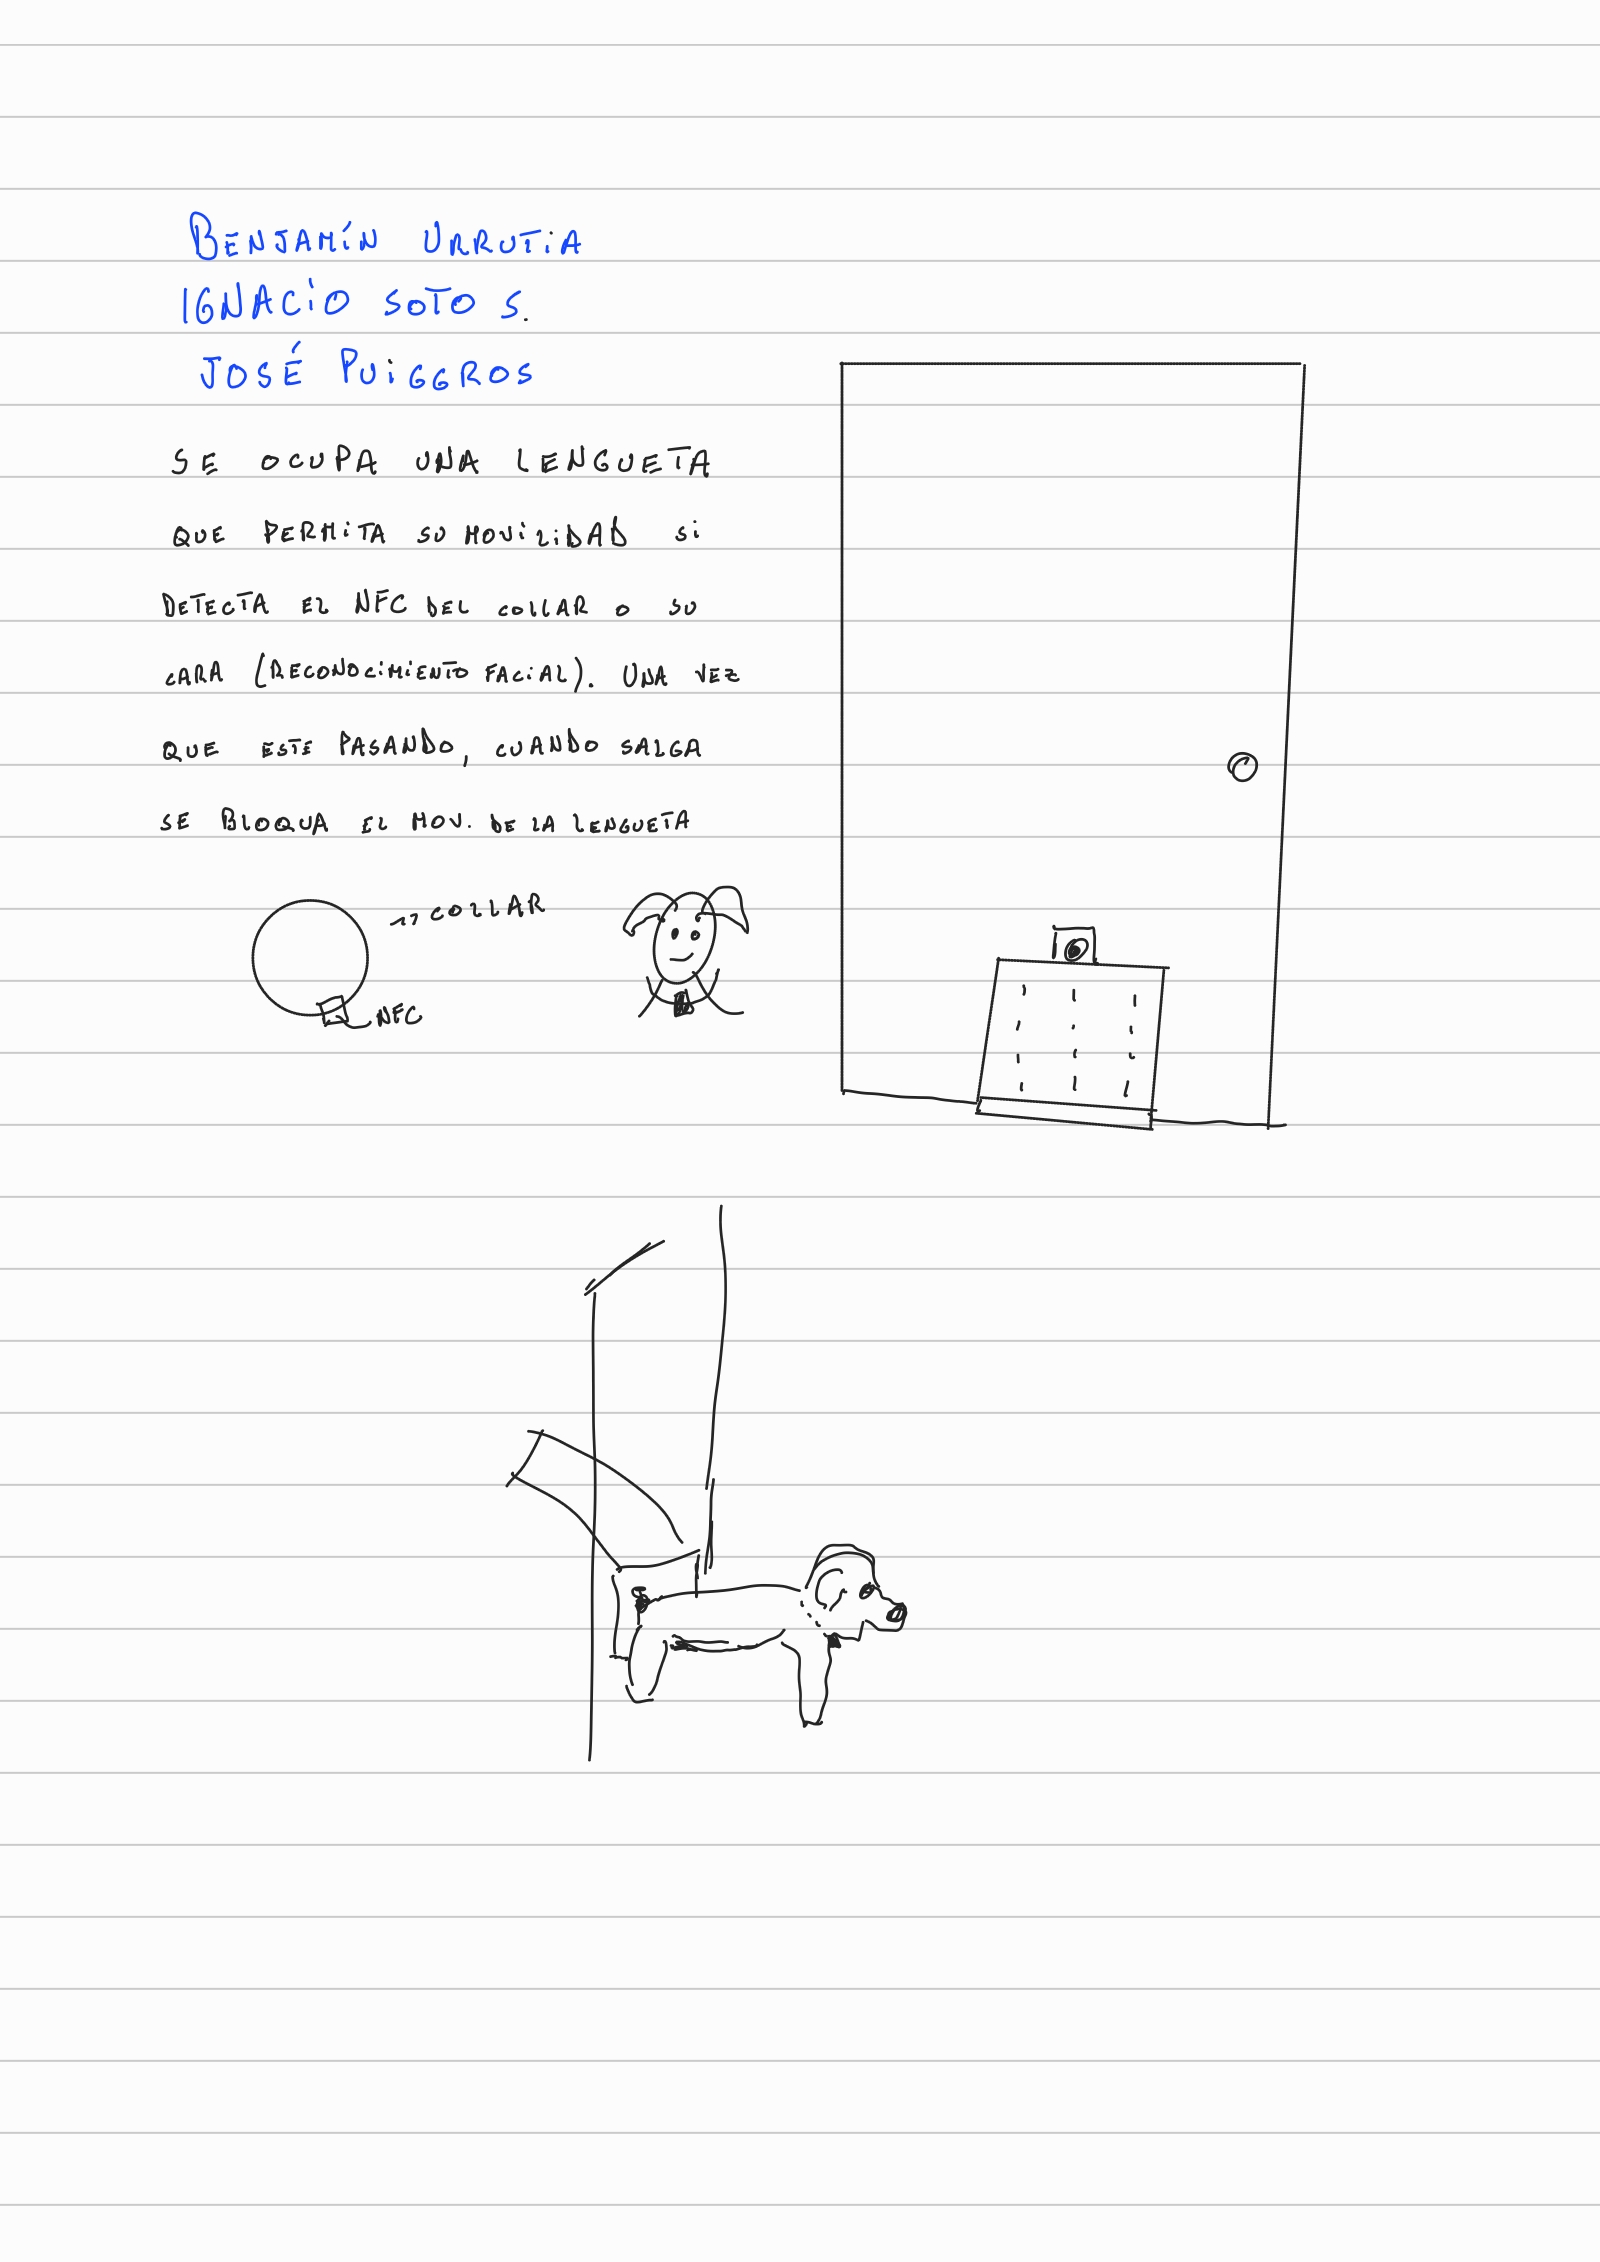 BENJAMÍN URRUTIA
IGNACIO SOTO S.
JOSÉ PUIGGROS
SE OCUPA UNA LENGUETA
QUE PERMITA SU MOVILIDAD SI
DETECTA EL NFC DEL COLLAR O SU
CARA (RECONOCIMIENTO FACIAL). UNA VEZ
QUE ESTE PASANDO, CUANDO SALGA
SE BLOQUA EL MOV. DE LA LENGUETA
COLLAR
NFC